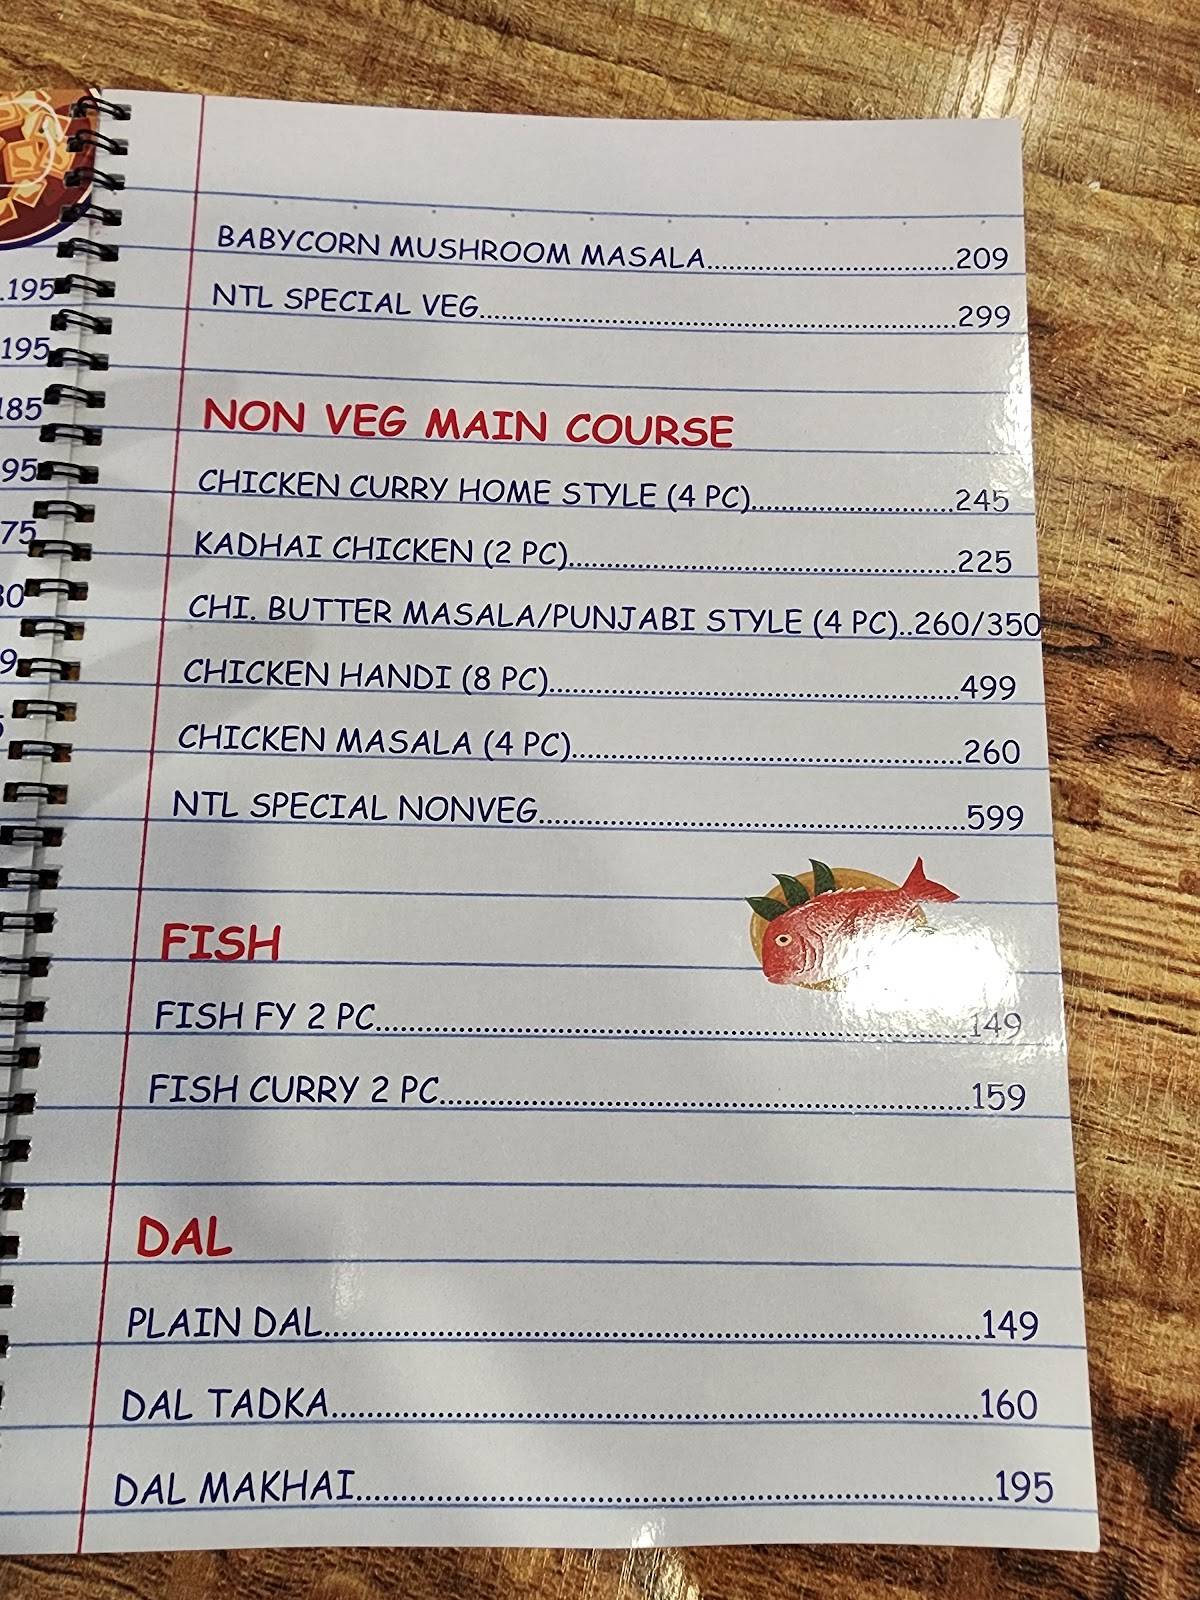 .195
195
185
95
75
30
9
BABYCORN MUSHROOM MASALA..............................209
NTL SPECIAL VEG..........................................................299
NON VEG MAIN COURSE
CHICKEN CURRY HOME STYLE (4 PC).........................245
KADHAI CHICKEN (2 PC)...............................................225
CHI. BUTTER MASALA/PUNJABI STYLE (4 PC)..260/350
CHICKEN HANDI (8 PC)..................................................499
CHICKEN MASALA (4 PC)................................................260
NTL SPECIAL NONVEG....................................................599
FISH
FISH FY 2 PC.....................................................................149
FISH CURRY 2 PC..............................................................159
DAL
PLAIN DAL.........................................................................149
DAL TADKA........................................................................160
DAL MAKHAI.....................................................................195